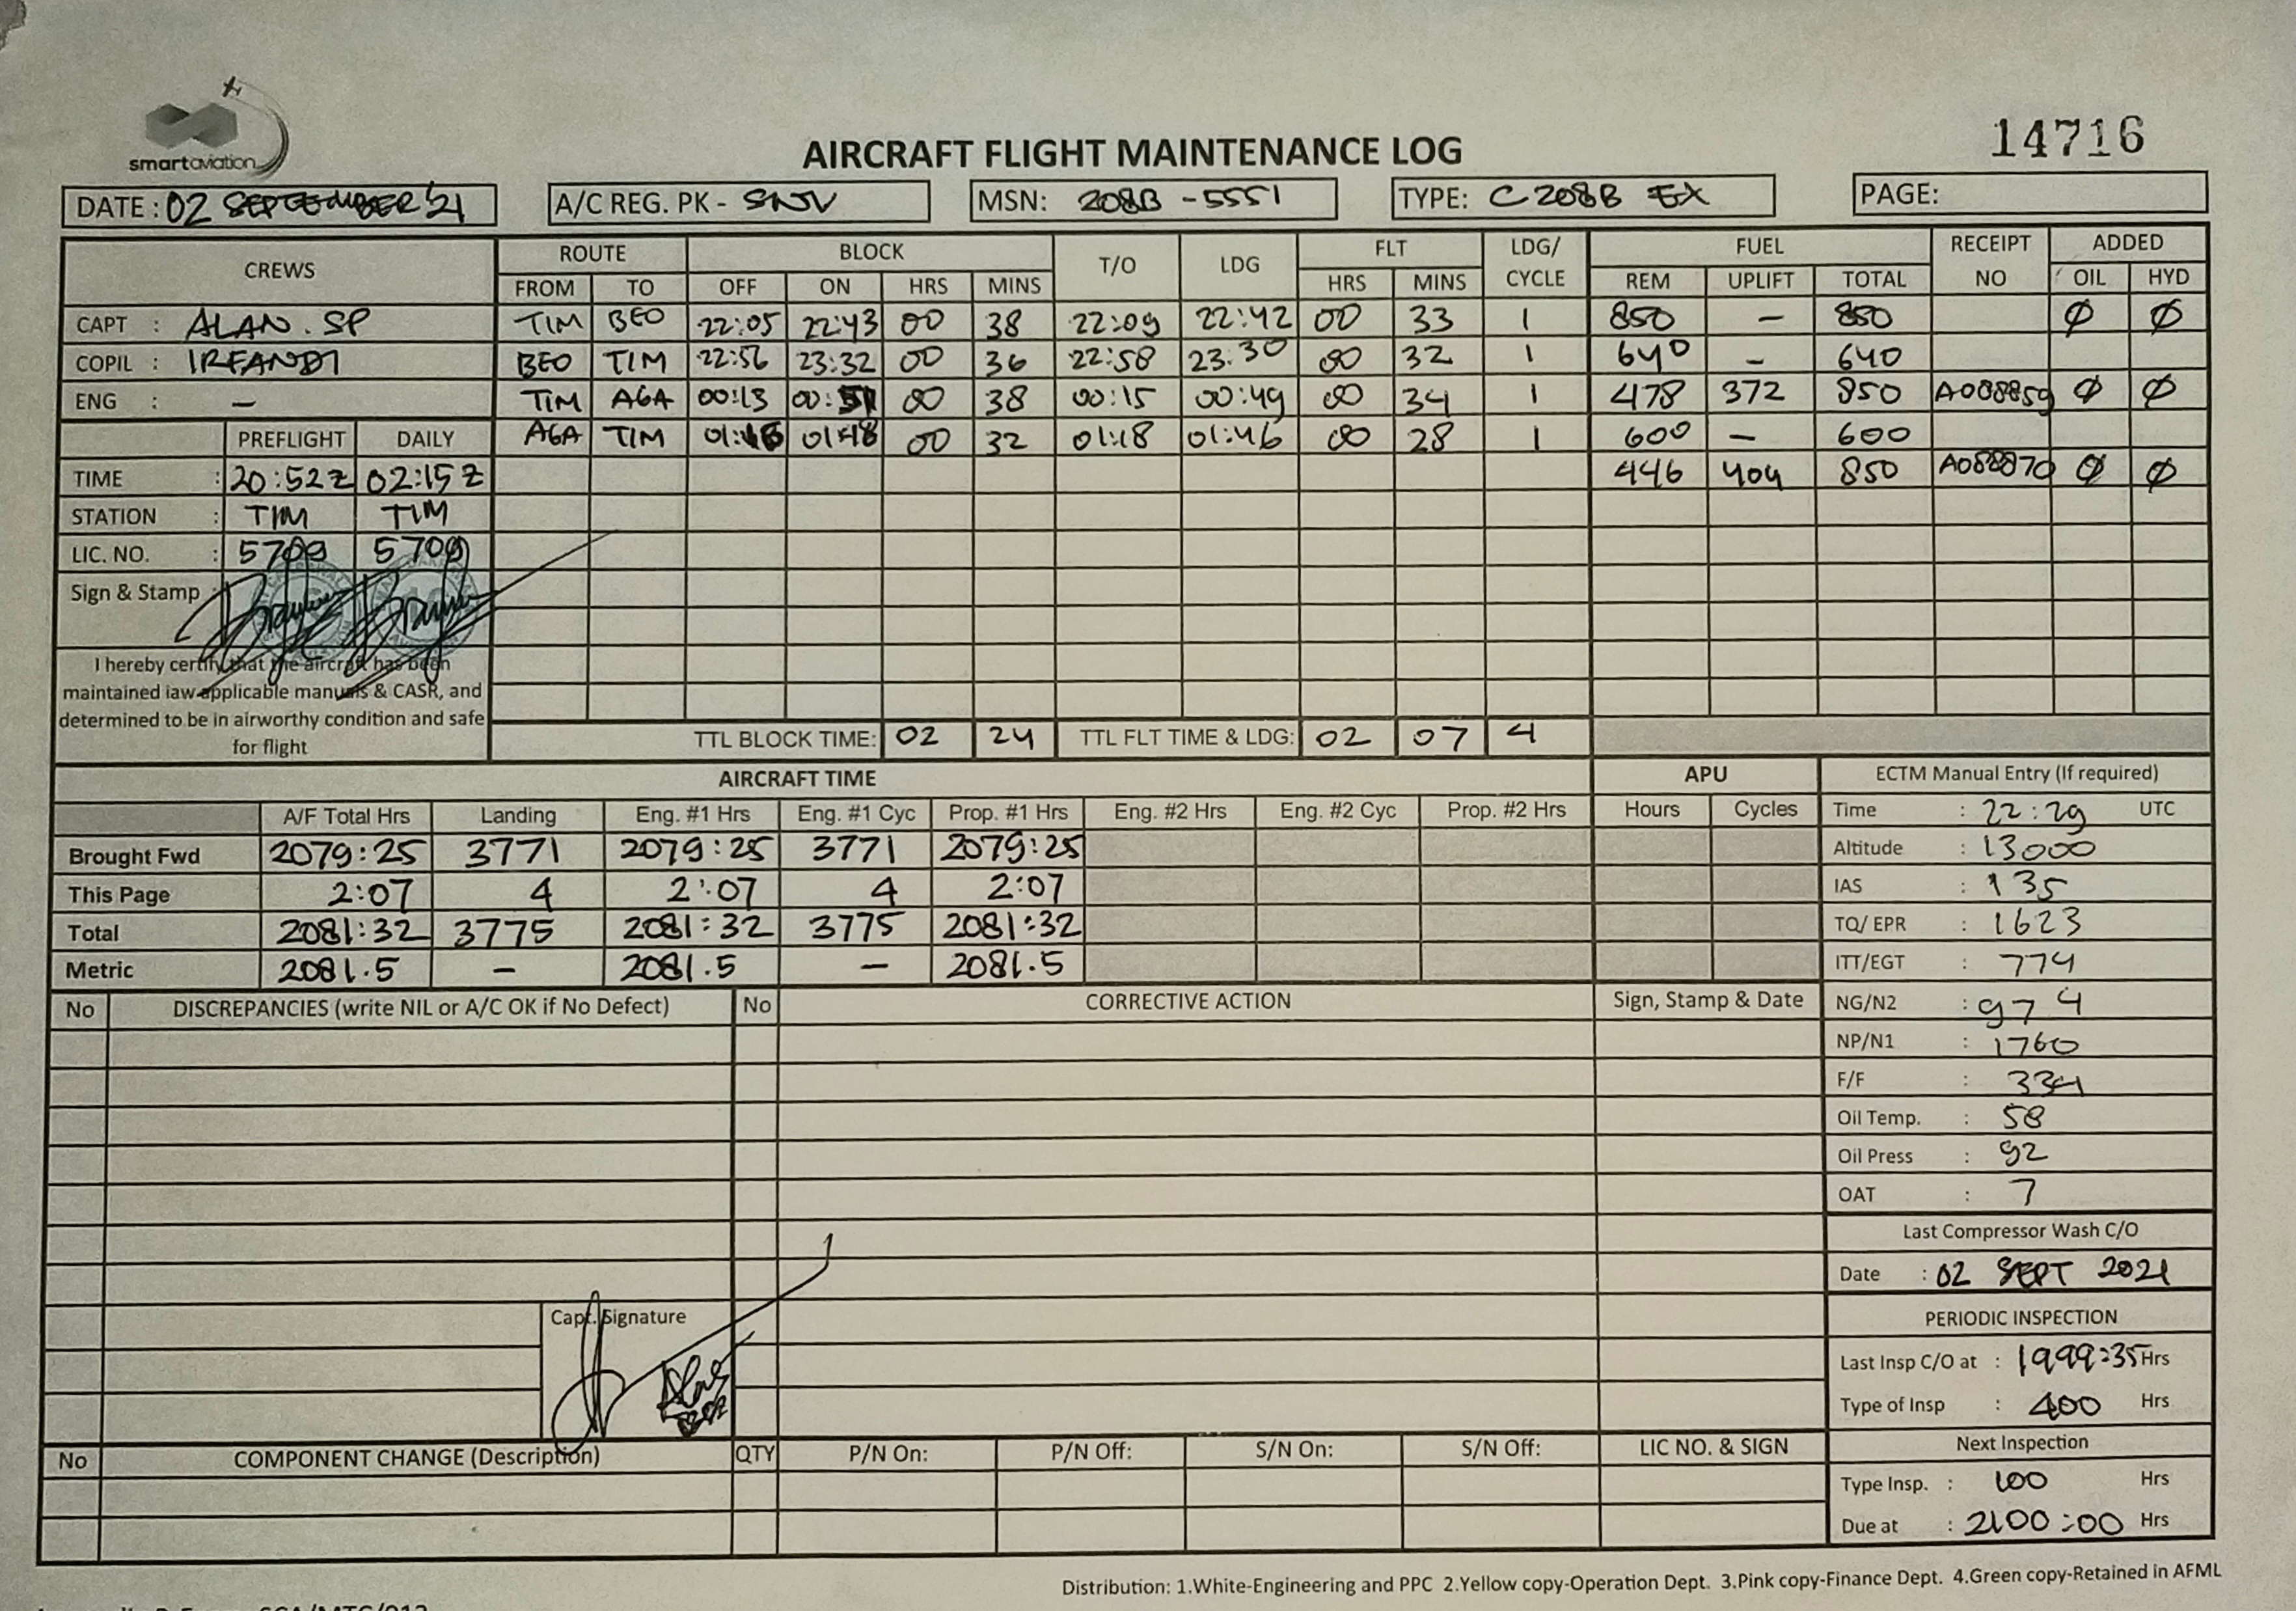 smartaviation
AIRCRAFT FLIGHT MAINTENANCE LOG
14716
DATE : 02 SEPTEMBER '21 A/C REG. PK - SNV MSN: 208B - 5551 TYPE: C 208B EX PAGE:
CREWS ROUTE BLOCK T/O LDG FLT LDG/ CYCLE FUEL RECEIPT NO ADDED
FROM TO OFF ON HRS MINS HRS MINS REM UPLIFT TOTAL OIL HYD
CAPT : ALAN. SP TIM BEO 22:05 22:43 00 38 22:09 22:42 00 33 1 850 - 850 Ø Ø
COPIL : IRFANDI BEO TIM 22:56 23:32 00 36 22:58 23:30 00 32 1 640 - 640
ENG : - TIM AGA 00:13 00:51 00 38 00:15 00:49 00 34 1 478 372 850 A088859 Ø Ø
PREFLIGHT DAILY AGA TIM 00 32 01:18 01:46 00 28 1 600 - 600
TIME : 20:52 Z 02:15 Z 446 404 850 A088870 Ø Ø
STATION : TIM TIM
LIC. NO. : 5709 5709
Sign & Stamp :
I hereby certify that the aircraft has been
maintained iaw applicable manuals & CASR, and
determined to be in airworthy condition and safe
for flight
TTL BLOCK TIME: 02 24 TTL FLT TIME & LDG: 02 07 4
AIRCRAFT TIME APU ECTM Manual Entry (If required)
A/F Total Hrs Landing Eng. #1 Hrs Eng. #1 Cyc Prop. #1 Hrs Eng. #2 Hrs Eng. #2 Cyc Prop. #2 Hrs Hours Cycles Time : 22:29 UTC
Brought Fwd 2079:25 3771 2079:25 3771 2079:25 Altitude : 13000
This Page 2:07 4 2:07 4 2:07 IAS : 135
Total 2081:32 3775 2081:32 3775 2081:32 TQ/ EPR : 1623
Metric 2081.5 - 2081.5 - 2081.5 ITT/EGT : 774
No DISCREPANCIES (write NIL or A/C OK if No Defect) No CORRECTIVE ACTION Sign, Stamp & Date NG/N2 : 97 4
NP/N1 : 1760
F/F : 334
Oil Temp. : 58
Oil Press : 92
OAT : 7
Last Compressor Wash C/O
Date : 02 SEPT 2021
Capt. Signature
PERIODIC INSPECTION
Last Insp C/O at : 1999:35 Hrs
Type of Insp : 400 Hrs
No COMPONENT CHANGE (Description) QTY P/N On: P/N Off: S/N On: S/N Off: LIC NO. & SIGN Next Inspection
Type Insp. : 100 Hrs
Due at : 2100:00 Hrs
Distribution: 1.White-Engineering and PPC 2.Yellow copy-Operation Dept. 3.Pink copy-Finance Dept. 4.Green copy-Retained in AFML